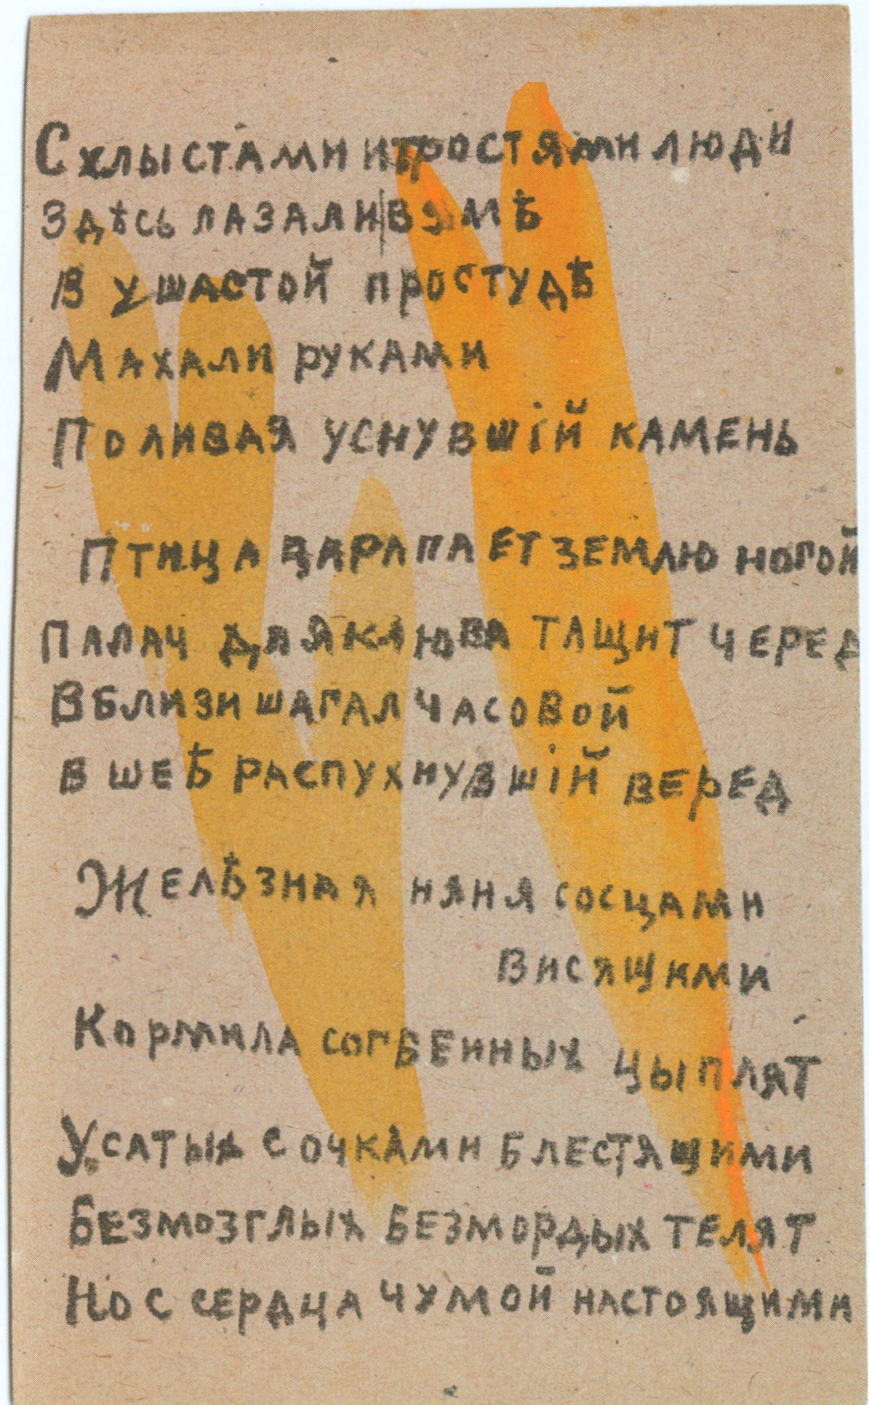 С хлыстами и тростями люди
Здѣсь лазали в умѣ
В ушастой простудѣ
Махали руками
Поливая уснувшій камень
Птица царапает землю ногой
Палач для клюва тащит черед
Вблизи шагал часовой
в шеѣ распухнувшій веред
Желѣзная няня сосцами
висящими
Кормила согбенных цыплят
Усатых с очками блестящими
Безмозглых безмордых телят
Но с сердца чумой настоящими